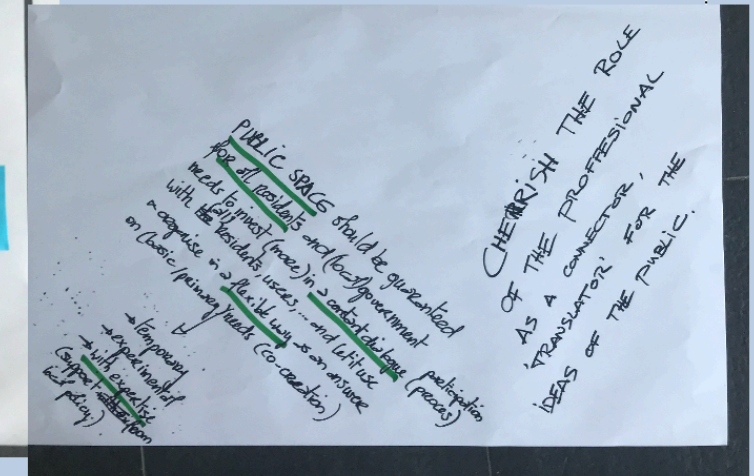 PUBLIC SPACE should be guaranteed
for all residents and (local) government
needs to invest (more) in a constant dialogue (process)
participation
with all residents, users, ... and let it use
organise in a flexible way as an answer
on (basic/primary) needs (co-creation)
→ temporary
→ experimental
→ with expertise
(support from
local policy)
CHERRISH THE ROLE
OF THE PROFFESIONAL
AS A CONNECTOR,
'TRANSLATOR' FOR THE
IDEAS OF THE PUBLIC.